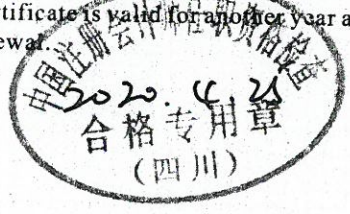 rtificate is valid for another year a
ewal..
中国注册会计师任职资格检查
2020.4.21
合格专用章
(四川)